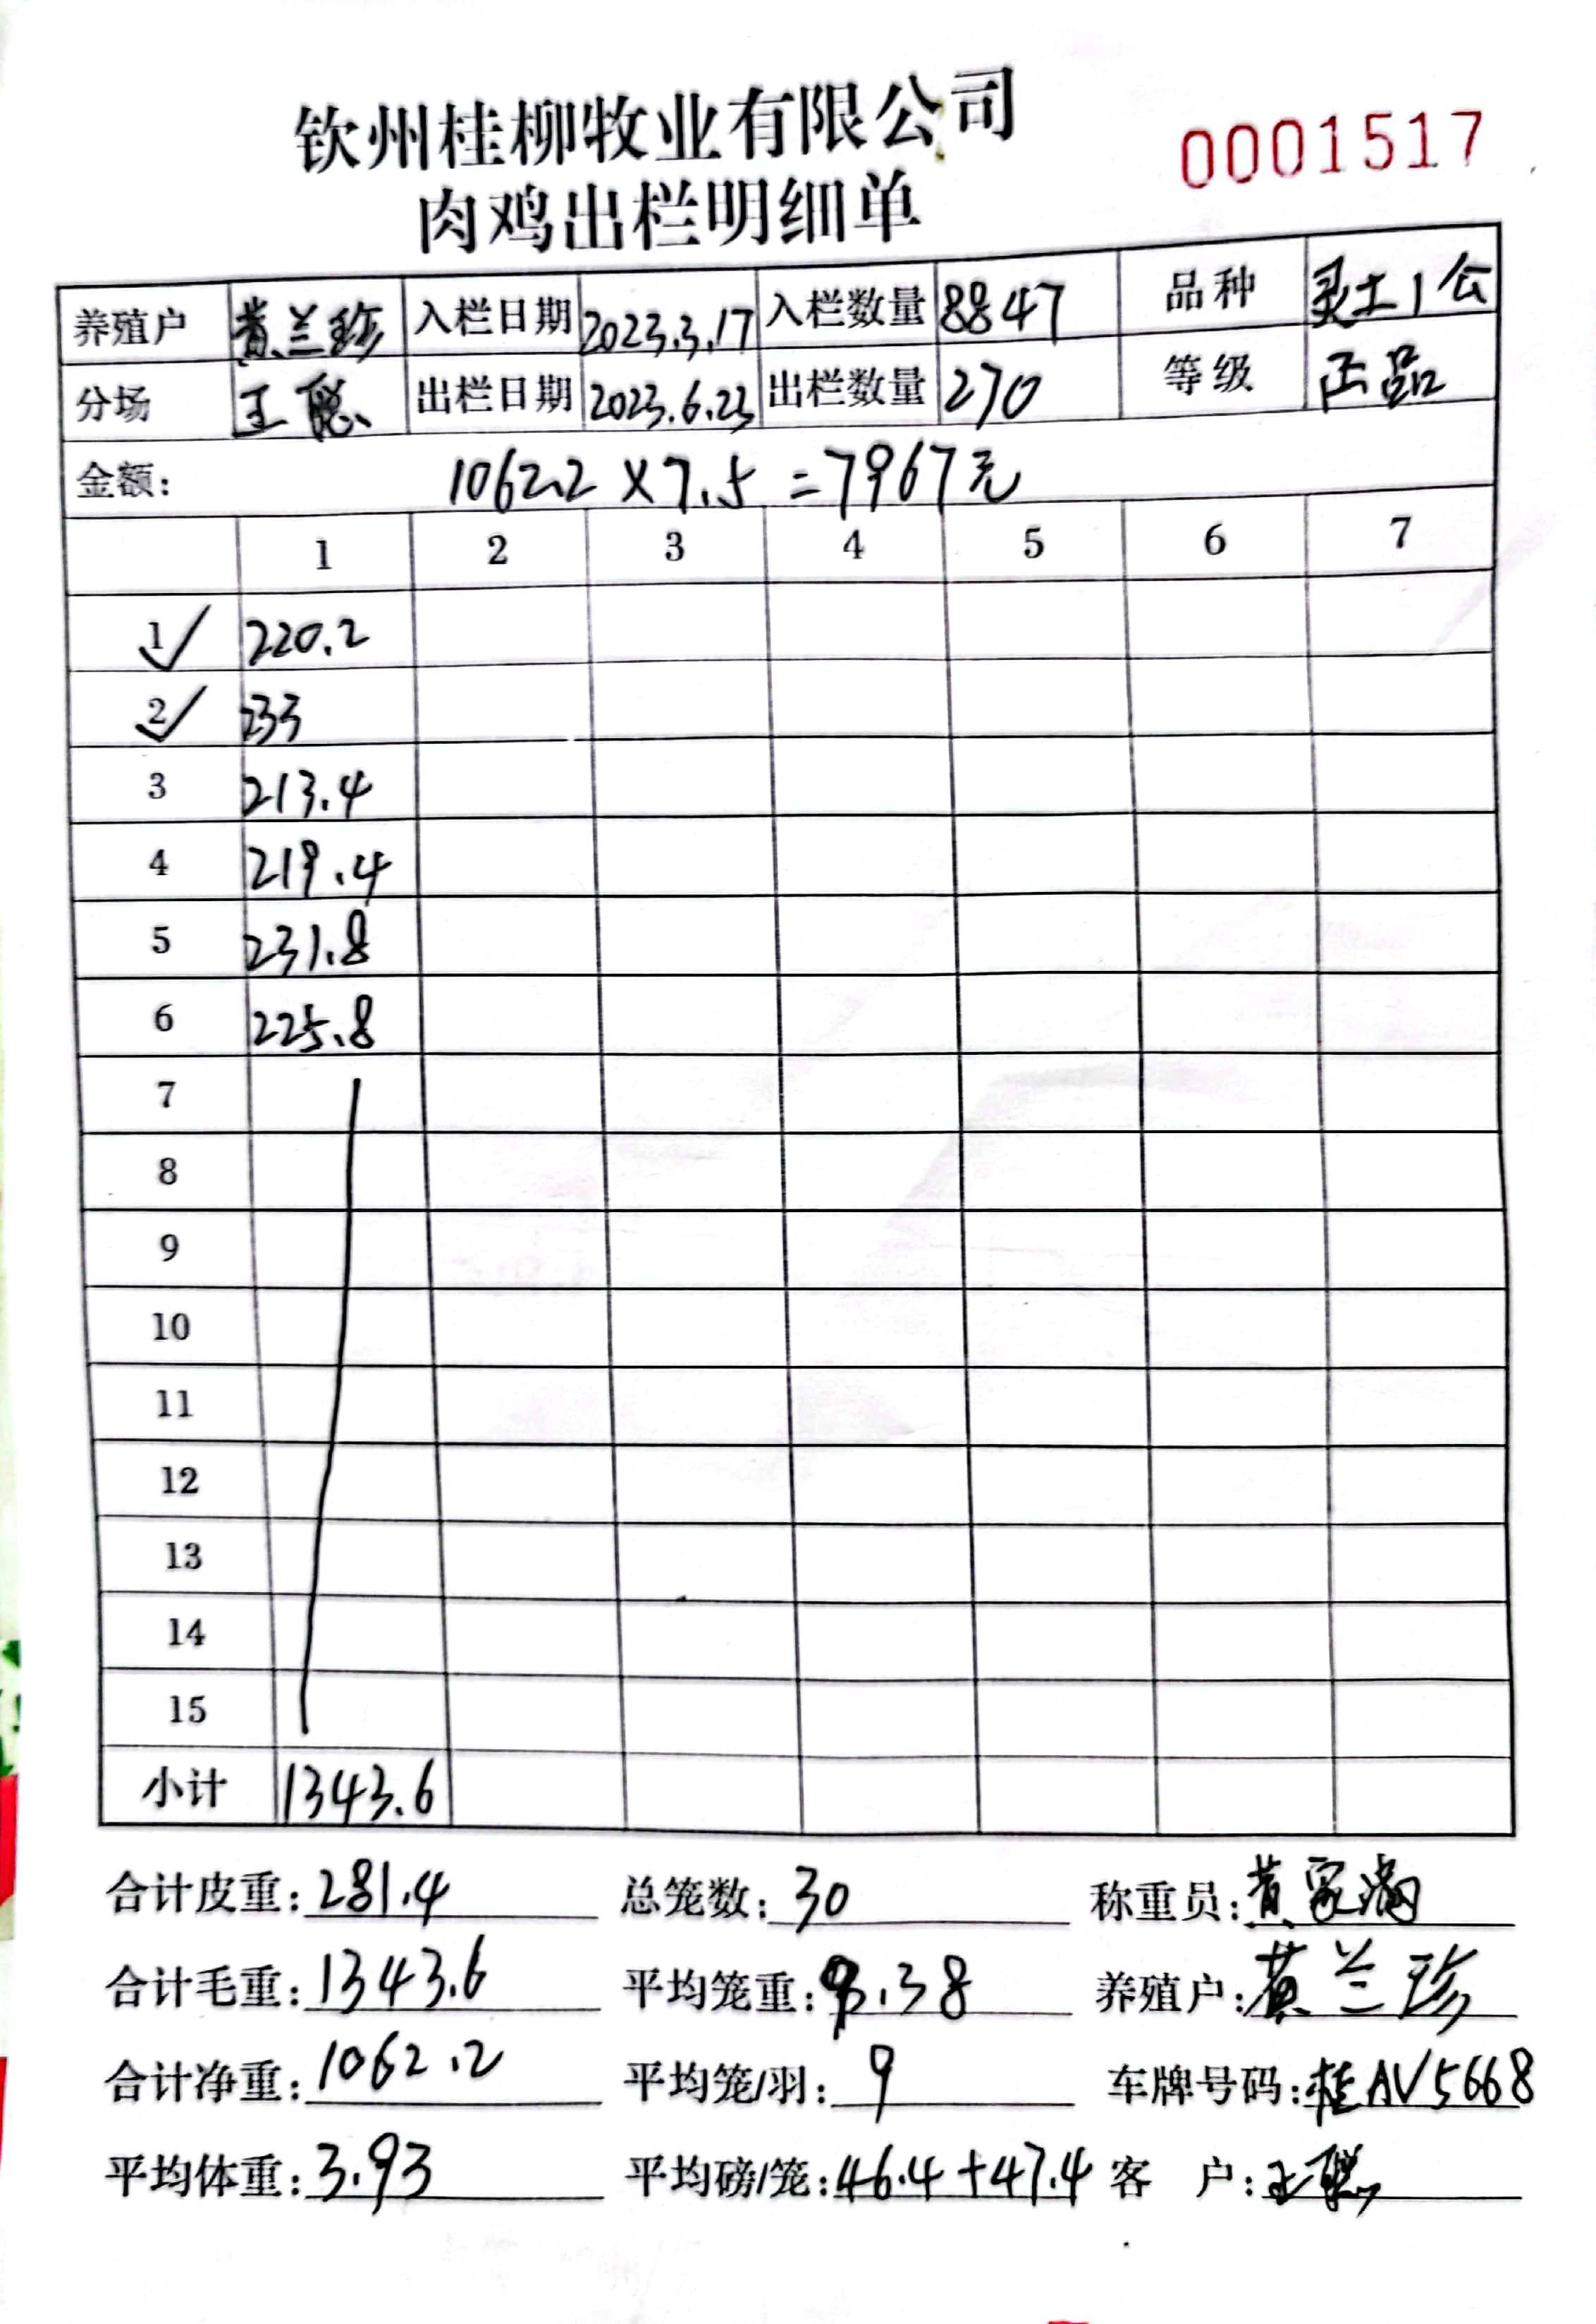 钦州桂柳牧业有限公司
0001517
肉鸡出栏明细单
养殖户 黄兰珍 入栏日期 2023.3.17 入栏数量 8847 品种 灵土1公
分场 王聪 出栏日期 2023.6.23 出栏数量 270 等级 正品
金额: 1062.2×7.5=7967元
1 2 3 4 5 6 7
1 220.2
2 233
3 213.4
4 219.4
5 231.8
6 225.8
7
8
9
10
11
12
13
14
15
小计 1343.6
合计皮重: 281.4 总笼数: 30 称重员: 黄家满
合计毛重: 1343.6 平均笼重: 9.38 养殖户: 黄兰珍
合计净重: 1062.2 平均笼/羽: 9 车牌号码: 桂AV5668
平均体重: 3.93 平均磅/笼: 46.4+47.4 客 户: 王聪